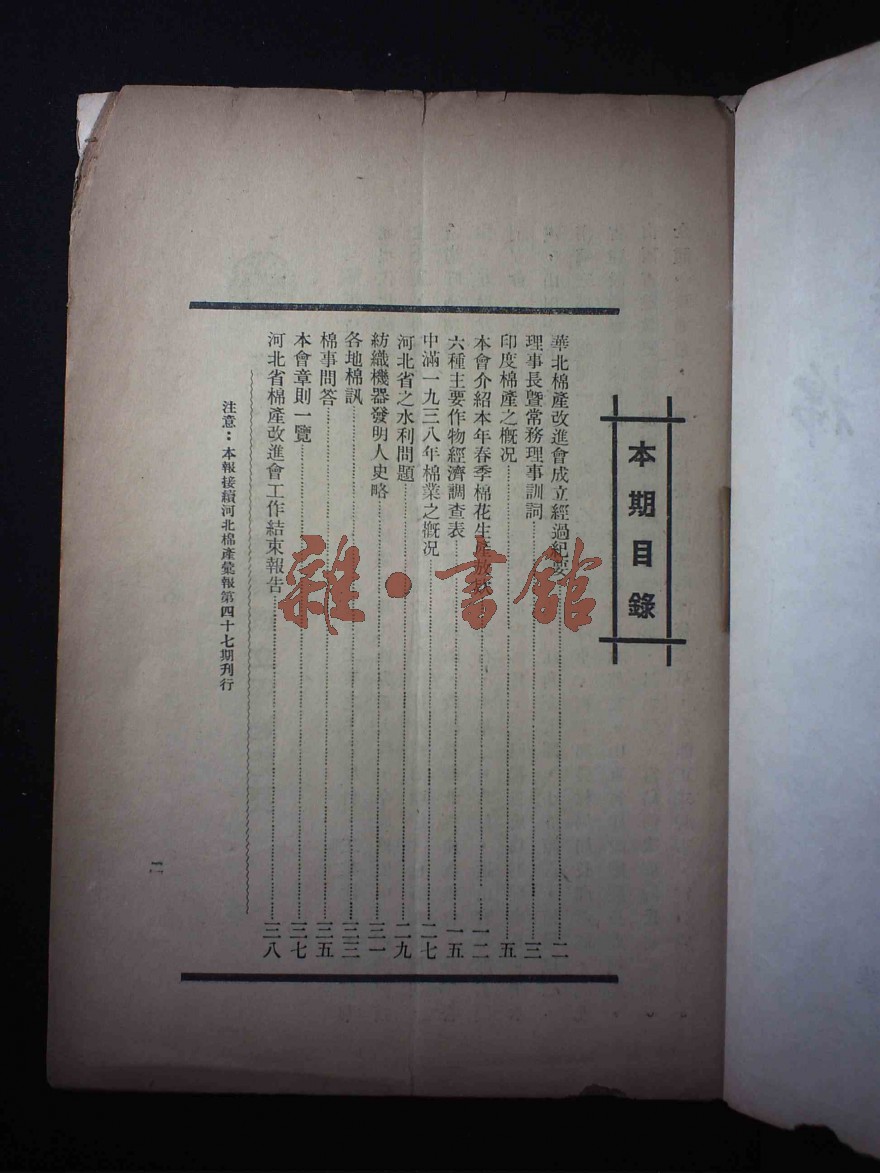 本期目錄
華北棉產改進會成立經過紀要……二
理事長暨常務理事訓詞……三
印度棉產之概況……五
本會介紹本年春季棉花生產放款……一二
六種主要作物經濟調查表……一五
中滿一九三八年棉業之概況……二七
河北省之水利問題……二九
紡織機器發明人史略……三一
各地棉訊……三三
棉事問答……三五
本會章則一覽……三七
河北省棉產改進會工作結束報告……三八
注意：本報接續河北棉產彙報第四十七期刊行
雜·書館